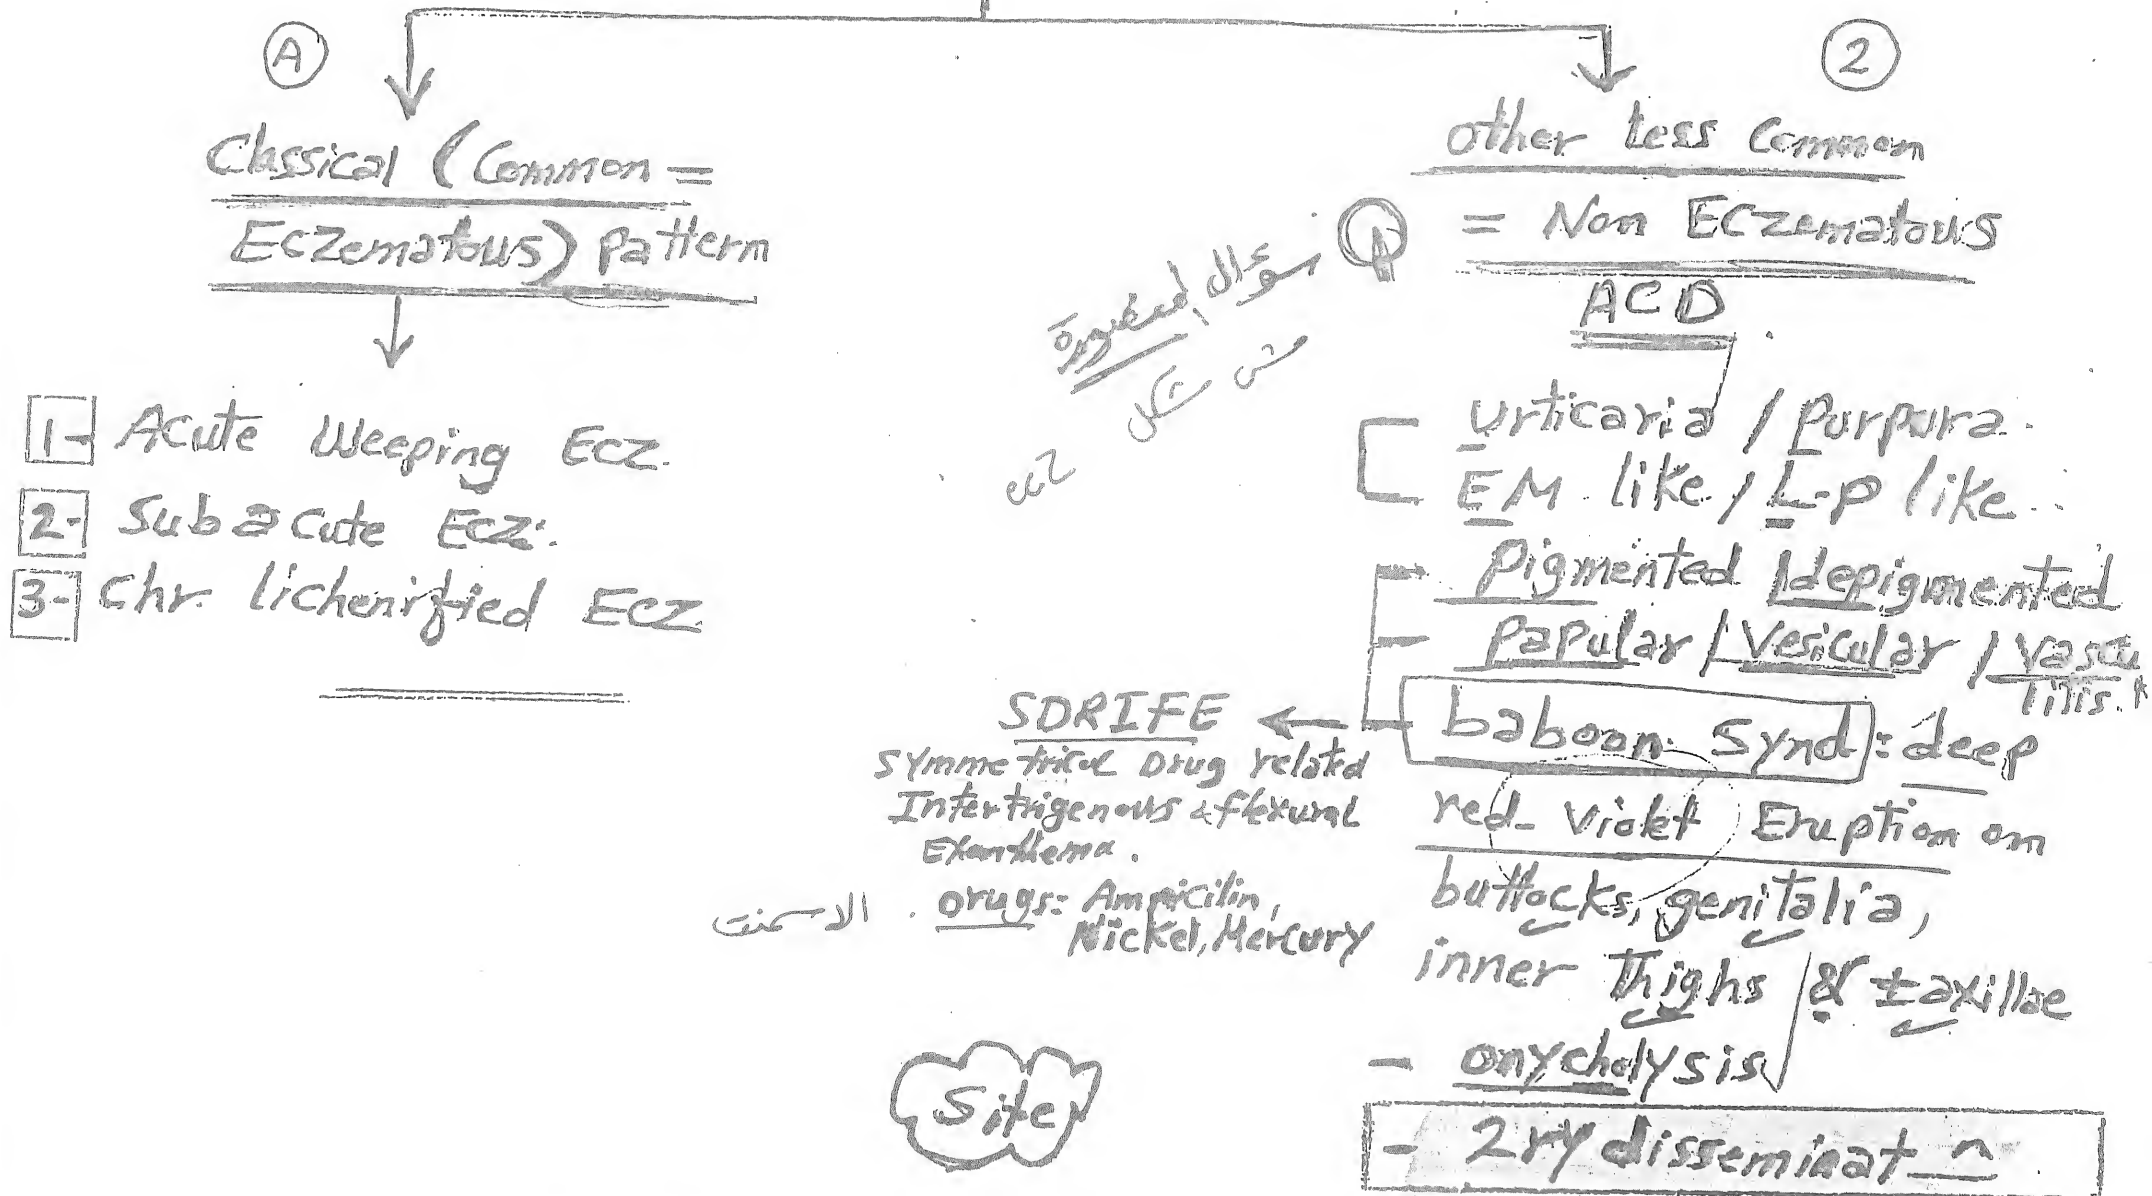 A
Classical (Common =
Eczematous) pattern
1- Acute Weeping Ecz.
2- Subacute Ecz.
3- Chr. lichenified Ecz
2
other less Common
= Non Eczematous
ACD
Q سؤال
مش شكل
ecz
urticaria / purpura.
EM like / L.p like..
pigmented / depigmented
papular / Vesicular / Vascu
litis.
baboon Synd: deep
red_ Violet Eruption on
buttocks, genitalia,
inner Thighs & ± axillae
- onycholysis
- 2ry disseminat_n
SDRIFE
Symmetrical Drug related
Intertrigenous & flexural
Exanthema.
Drugs: Ampicilin,
Nickel, Mercury
الاسمنت
Site